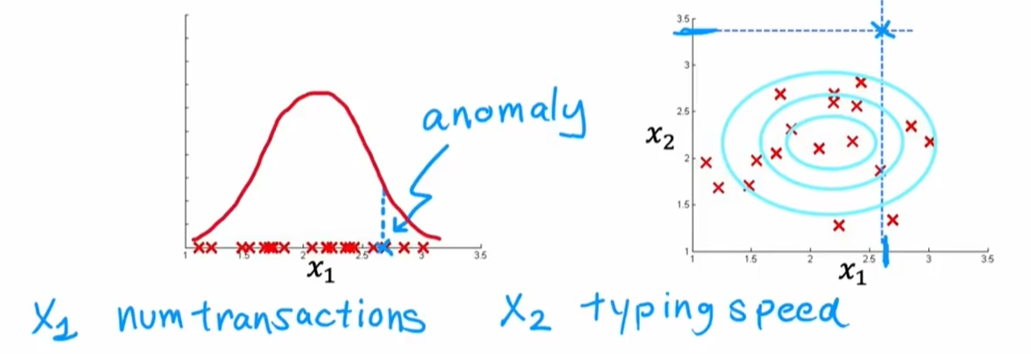 anomaly
1 1.5 2 2.5 3 3.5
x1
3.5
3
2.5
x2
2
1.5
1
1 1.5 2 2.5 3 3.5
x1
X1 num transactions
X2 typing speed